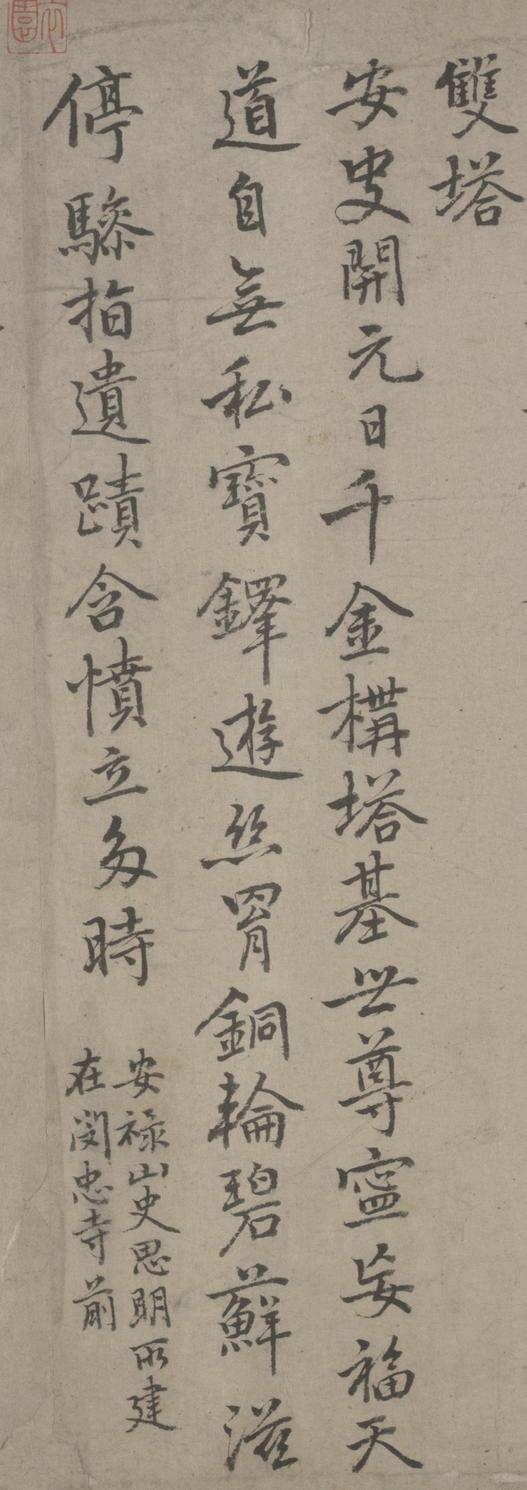 雙塔
安史開元日千金構塔基世尊寧妄福天
道自無私寶鐸遊絲罥銅輪碧蘚滋
停驂指遺蹟含憤立多時
安祿山史思明所建
在閔忠寺前